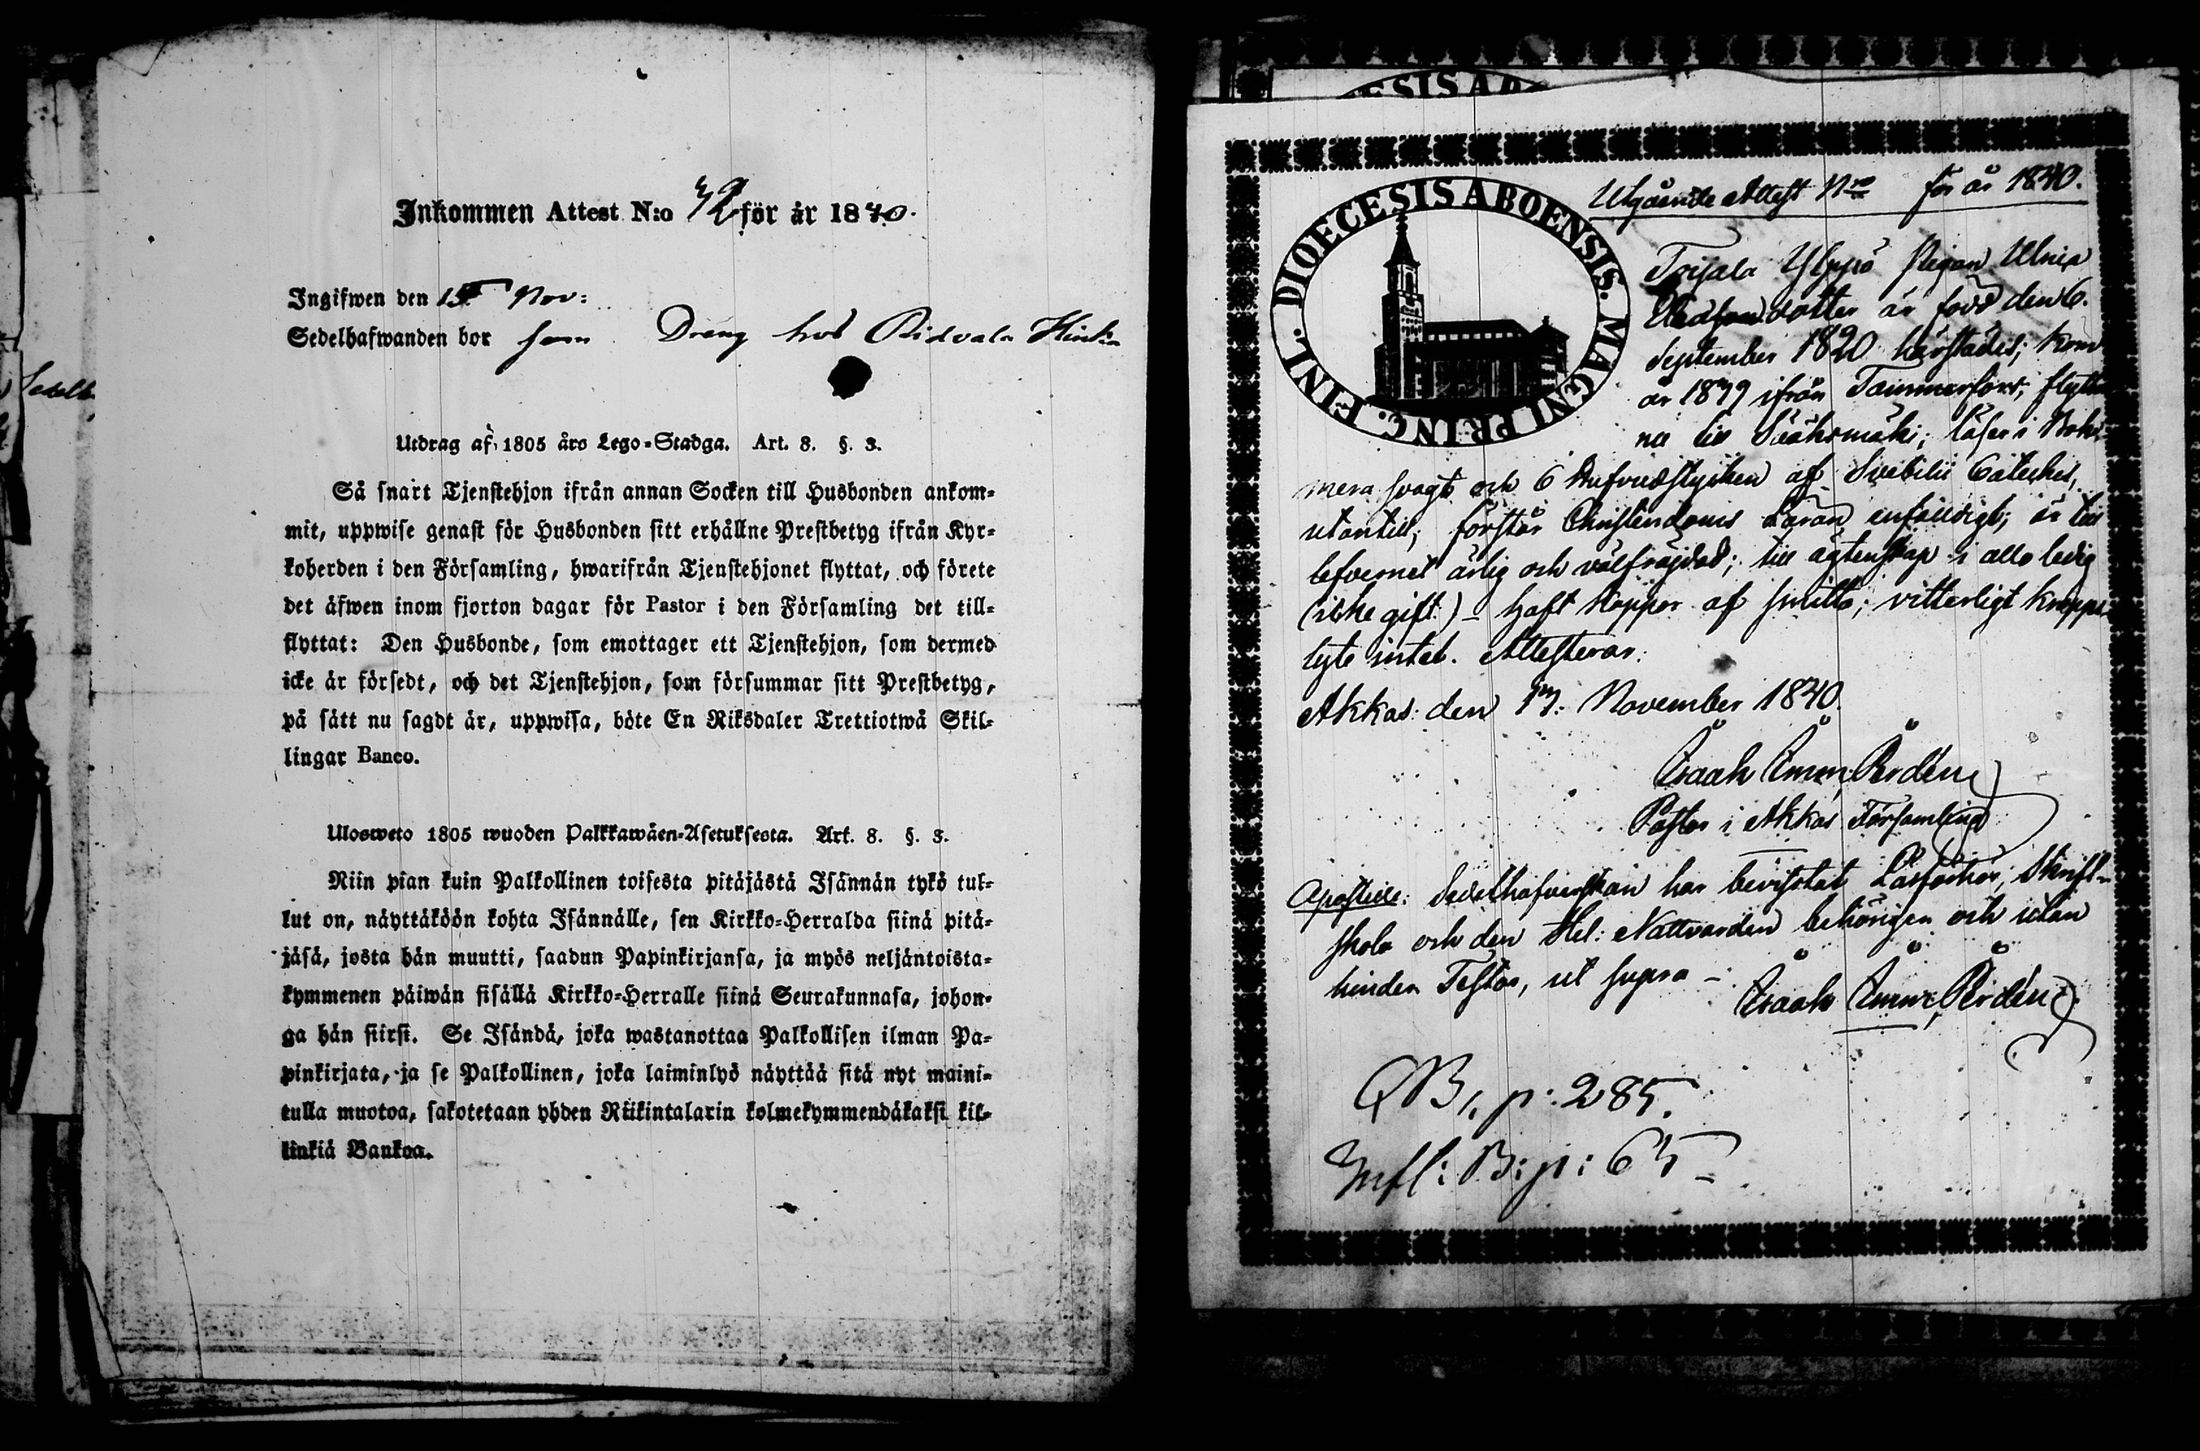 Inkommen Attest N:o 42 för år 1840.
Ingifwen den 15 Nov:
Sedelhafwanden bor som Dreng hos Ridvala Heick
Utdrag af 1805 års Lego-Stadga. Art. 8. §. 3.
Så snart Tjenstehjon ifrån annan Socken till Husbonden ankom-
mit, uppwise genast för Husbonden sitt erhållne Prestbetyg ifrån Kyr-
koherden i den Församling, hwarifrån Tjenstehjonet flyttat, och förete
det äfwen inom fjorton dagar för Pastor i den Församling det till-
flyttat: Den Husbonde, som emottager ett Tjenstehjon, som dermed
icke är försedt, och det Tjenstehjon, som försummar sitt Prestbetyg,
på sätt nu sagdt är, uppwisa, böte En Riksdaler Trettiotwå Skil-
lingar Banco.
Ulosweto 1805 wuoden Palkkawäen-Asetuksesta. Art. 8. §. 3.
Niin pian kuin Palkollinen toisesta pitäjästä Isännän tykö tul-
lut on, näyttäköön kohta Isännälle, sen Kirkko-Herralda siinä pitä-
jäsä, josta hän muutti, saadun Papinkirjansa, ja myös neljäntoista-
kymmenen päiwän sisällä Kirkko-Herralle siinä Seurakunnasa, johon-
ga hän siirsi. Se Isändä, joka wastanottaa Palkollisen ilman Pa-
pinkirjata, ja se Palkollinen, joka laiminlyö näyttää sitä nyt maini-
tulla muotoa, sakotetaan yhden Riikintalarin kolmekymmendäkaksi kil-
linkiä Bankoa.
DIOECESIS ABOENSIS. MAGNI PRINC. FINL.
Utgående Attest Nro för år 1840.
Toijala Yljsjö Pigan Ulrica
dotter är född den 6.
September 1820 härstädes; kom
år 1839 ifrån Tammerfors; flytt
nu till Sääksmäki; läser i Bok
mera svagt och 6 Hufvudstycken af Svebilii Cateches,
utantill; förstår Christendoms Läran enfaldigt; är till
lefvernet ärlig och välfräjdad; till ägtenskap i allo ledig
(icke gift) – haft Koppor af smitta; vitterligt kropps
lyte intet. Attesterar.
Akkas den 13. November 1840.
Isaak Emm. Pärdén
Pastor i Akkas Församling
Apostille: Sedelhafverskan har bevistat Läsförhör, Skrift-
skola och den Hel: Nattvarden behörigen och utan
hinder. Testor, ut supra –
Isaak Emm. Pärdén
CB, p: 285.
Infl: B: p: 65